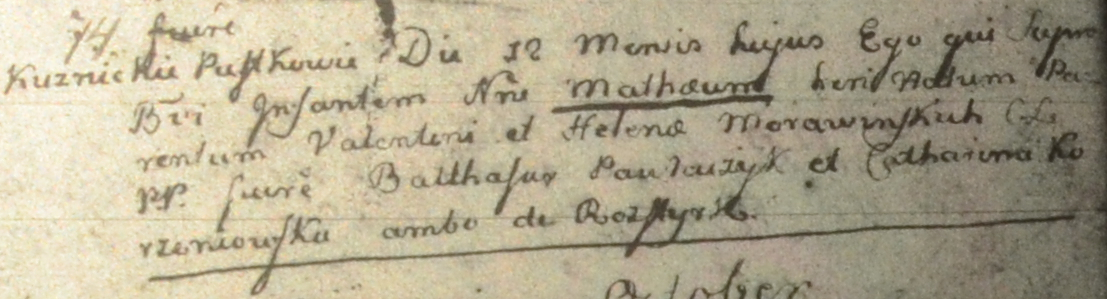 74 fuire
Kuznickie Pustkowie Die 12 Mensis hujus Ego qui Supra
Bvi Infantem Nne Mathaeum heri Natum Pa-
rentum Valentini et Helenae Morawinskich
PP. fuire Balthasar et Catharina Ko
rzeniowska ambo de
October